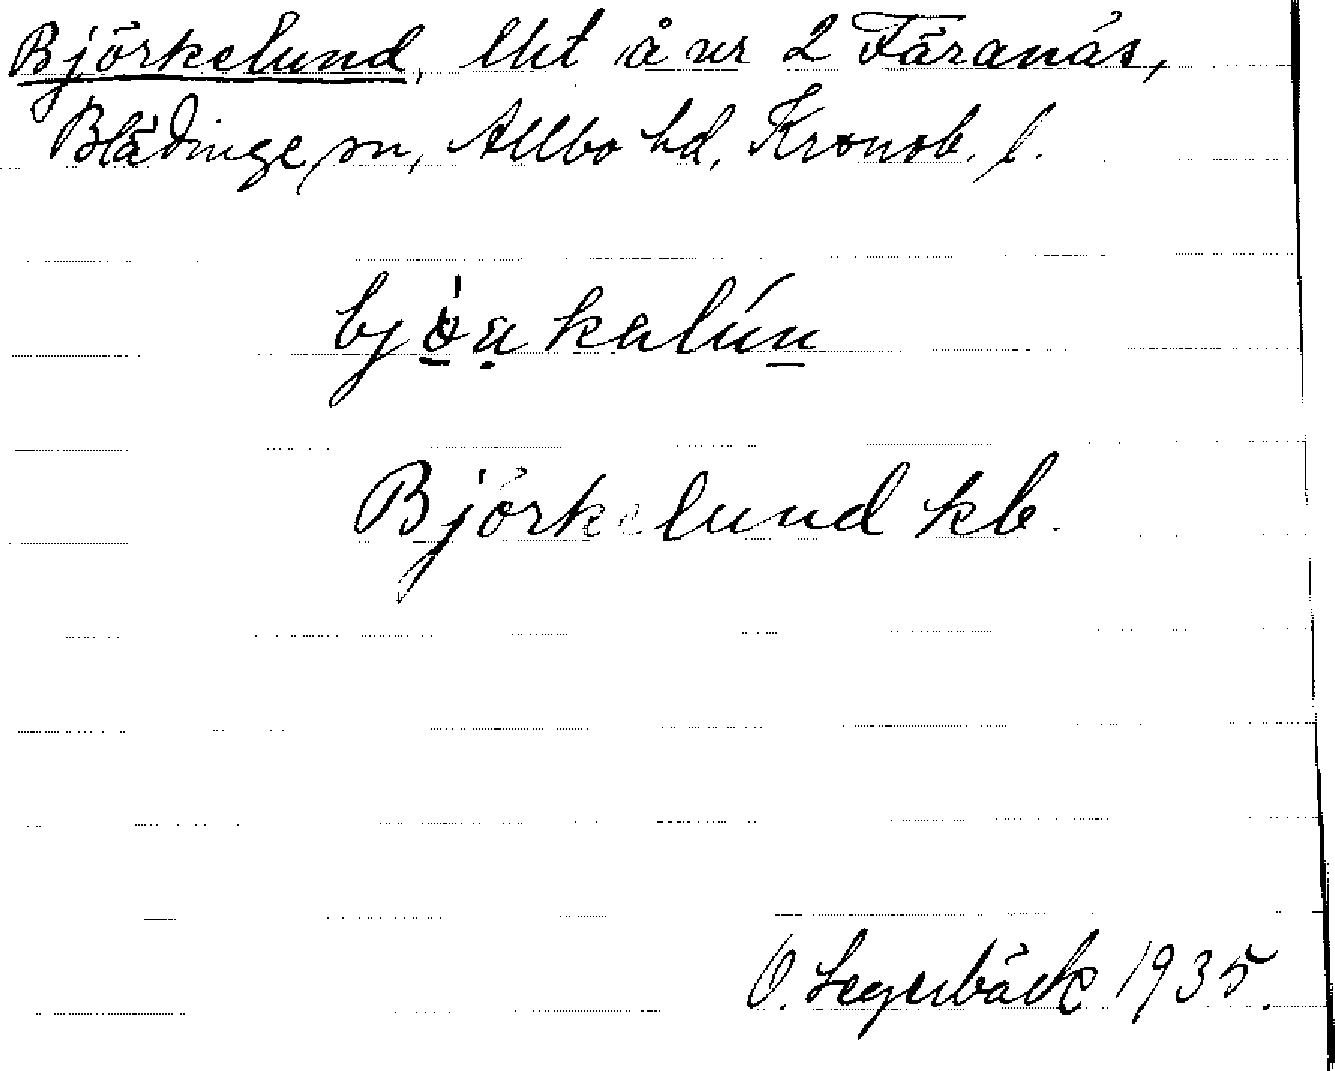 Björkelund, lht å nr 2 Färanäs,
Blädinge sn, Allbo hd, Kronob. l.
Björkelund kb.
O. Segerbäck 1935.